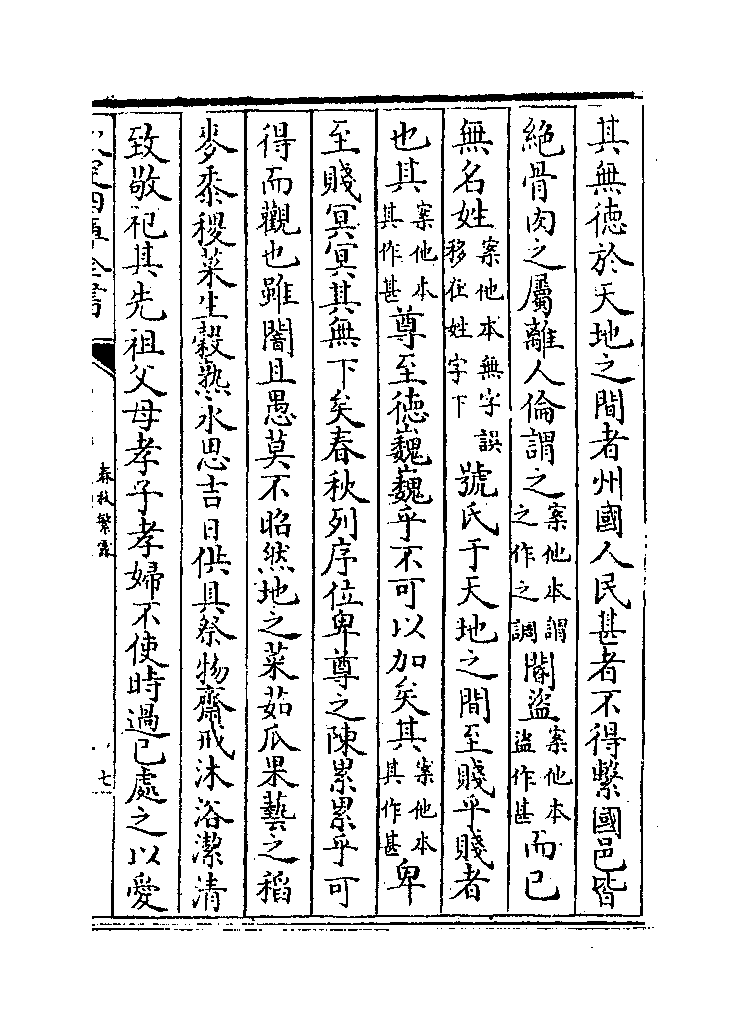 其無徳於天地之間者州國人民甚者不得繫國邑皆
絶骨肉之屬離人倫謂之案他本謂之作之調閽盜案他本盜作甚而已
無名姓案他本無字誤移在姓字下號氏于天地之間至賤乎賤者
也其案他本其作甚尊至徳巍巍乎不可以加矣其案他本其作甚卑
至賤冥冥其無下矣春秋列序位卑尊之陳累累乎可
得而觀也雖闇且愚莫不昭然地之菜茹瓜果藝之稻
麥黍稷菜生穀熟永思吉日供具祭物齋戒沐浴潔清
致敬祀其先祖父母孝子孝婦不使時過已處之以愛
春秋繁露
七